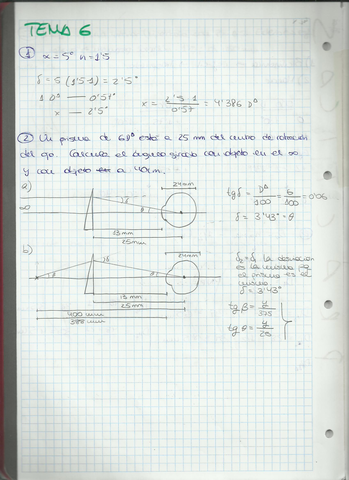 TEMA 6
① α = 5° n = 1'5
δ = 5 (1'5-1) = 2'5°
1 D^Δ — 0'57°
x — 2'5°
x = 2'5·1 / 0'57 = 4'386 D^Δ
② Un prisma de 6D^Δ está a 25 mm del centro de rotación
del ojo. Calcula el ángulo girado con objeto en el ∞
y con objeto a 40cm.
a)
24mm
∞
δ
θ
15mm
25mm
tg δ = D^Δ/100 = 6/100 = 0'06
δ = 3'43° = θ
b)
24mm
δ
β
θ
15mm
25mm
400 mm
375 mm
δ2 = δ la desviación
es la misma pq
el prisma es el
mismo
δ = 3'43°
tg β = y/375
tg θ = y/25